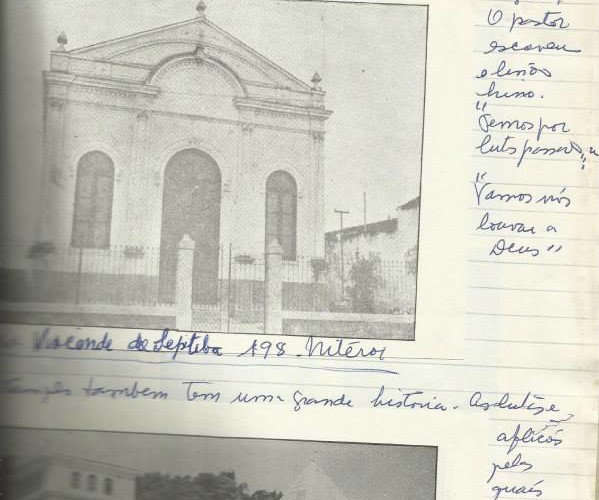 O pastor
escreveu
o lindo
hino.
"Temos por
luta passar",
"Vamos nós
louvar a
Deus"
Visconde de Sepetiba 198. Niterói
tambem tem uma grande historia. As lutas e
aflicões
pelas
quais